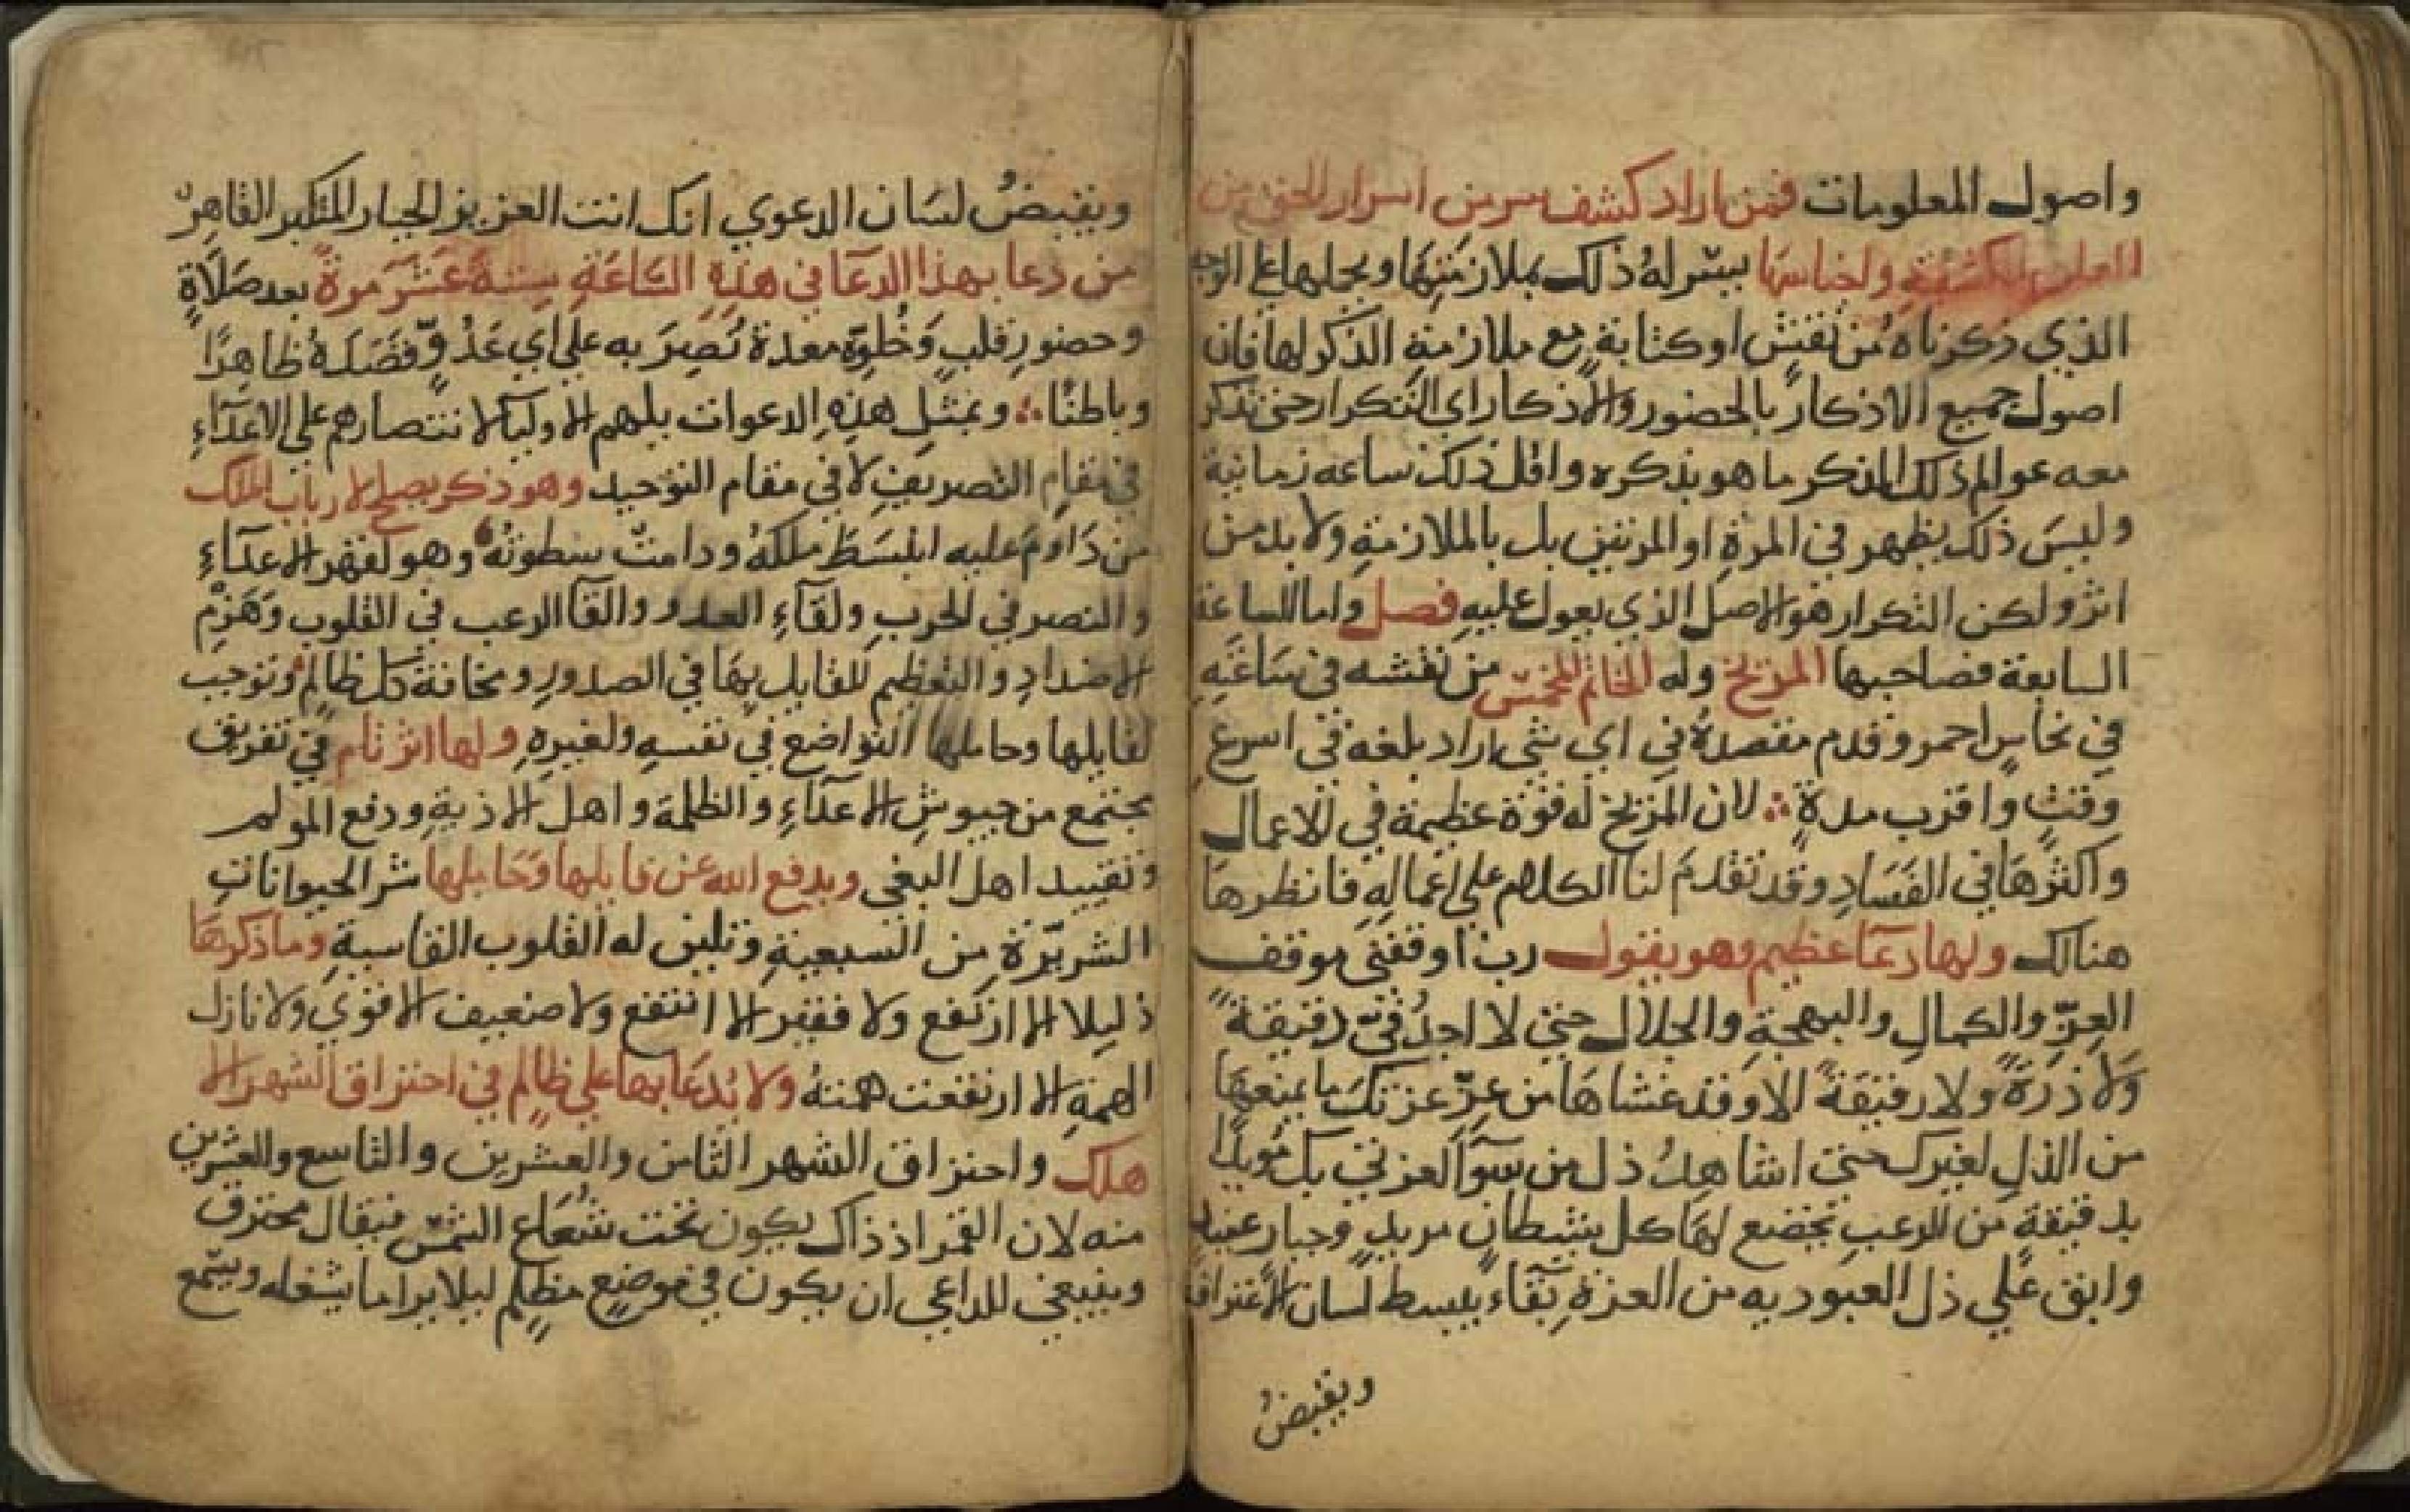 واصول المعلومات فمن اراد كشف سر من اسرار الحق من
العلوم الكشفية ولخباسها ييسر له ذلك بملازمتها ويجلها على الوجه
الذي ذكرناه من نقش او كتابة مع ملازمة الذكر لها فان
اصول جميع الاذكار بالحضور والاذكار اي التكرار حتى تذكر
معه عوالم ذلك المذكر ما هو بذكره واقل ذلك ساعه زمانية
وليس ذلك يظهر في المرة او المرتين بل بالملازمة ولا بد من
اثر ولكن التكرار هو الاصل الذي يعول عليه فصل واما الساعة
السابعة فصاحبها المريخ وله الخاتم المخمس من نقشه في ساعته
في نحاس احمر وقدم مقصده في اي شي اراد بلغه في اسرع
وقت واقرب مدة ∴ لان المريخ له قوة عظيمة في الاعمال
واكثرها في الفساد وقد تقدم لنا الكلام على اعماله فانظرها
هنالك ولها دعآ عظيم وهو يقول رب اوقفني موقف
العز والكمال والبهجة والجلال حتى لا اجد في دقيقة
ولا ذرة ولا رقيقة الا وقد غشاها من عز عزتك ما يمنعها
من الذل لغيرك حتى اشاهد ذل من سوآ لعزتي بك مويدا
بدقيقة من الرعب يخضع لها كل شيطان مريد وجبار عنيد
وابق علي ذل العبوديه من العزة بقآء يبسط لسان الاعتراف
ويقبض
ويقبض لسان الدعوي انك انت العزيز الجبار المتكبر القاهر
من دعا بهذا الدعآ في هذه الساعة ستة عشر مرة بعد صلاة
وحضور قلب وخلوة معدة نصر به على اي عدو قصله ظاهرا
وباطنا ∴ وبمثل هذه الدعوات يلهم الاوليآ لانتصارهم على الاعدآء
في مقام التصريف لا في مقام التوحيد وهو ذكر يصلح لارباب الملك
من داوم عليه انبسط ملكه ودامت سطوته وهو لقهر الاعدآء
والنصر في الحرب ولقآء العدو والقآ الرعب في القلوب وهزم
الاضداد والتعظيم للقايل بها في الصدور ومخافة كل ظالم وتوجب
لقايلها وحاملها التواضع في نفسه ولغيره ولها اثر تام في تفريق
مجتمع من جيوش الاعدآء والظلمة واهل الاذية ودفع المولم
وتقييد اهل البغى ويدفع الله عن قايلها وحاملها شر الحيوانات
الشريرة من السبعية وتلين له القلوب القاسية وما ذكرها
ذليلا الا ارتفع ولا فقير الا انتفع ولا ضعيف الا قوي ولا نازل
الهمة الا ارتفعت همته ولا يدعا بها على ظالم في احتراق الشهر الا
هلك واحتراق الشهر الثامن والعشرين والتاسع والعشرين
منه لان القمر اذ ذاك يكون تحت شعاع الشمس فيقال محترق
وينبغي للداعي ان يكون في موضع مظلم ليلا يرا ما يشغله ويسمع